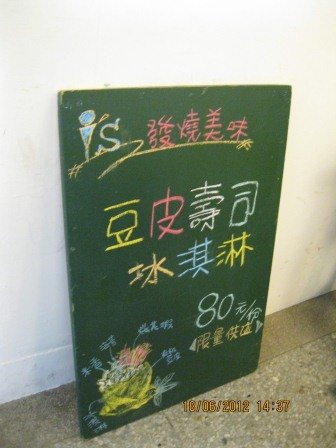 is 發燒美味
豆皮壽司
冰淇淋
80元/份
限量供應
10/06/2012 14:37